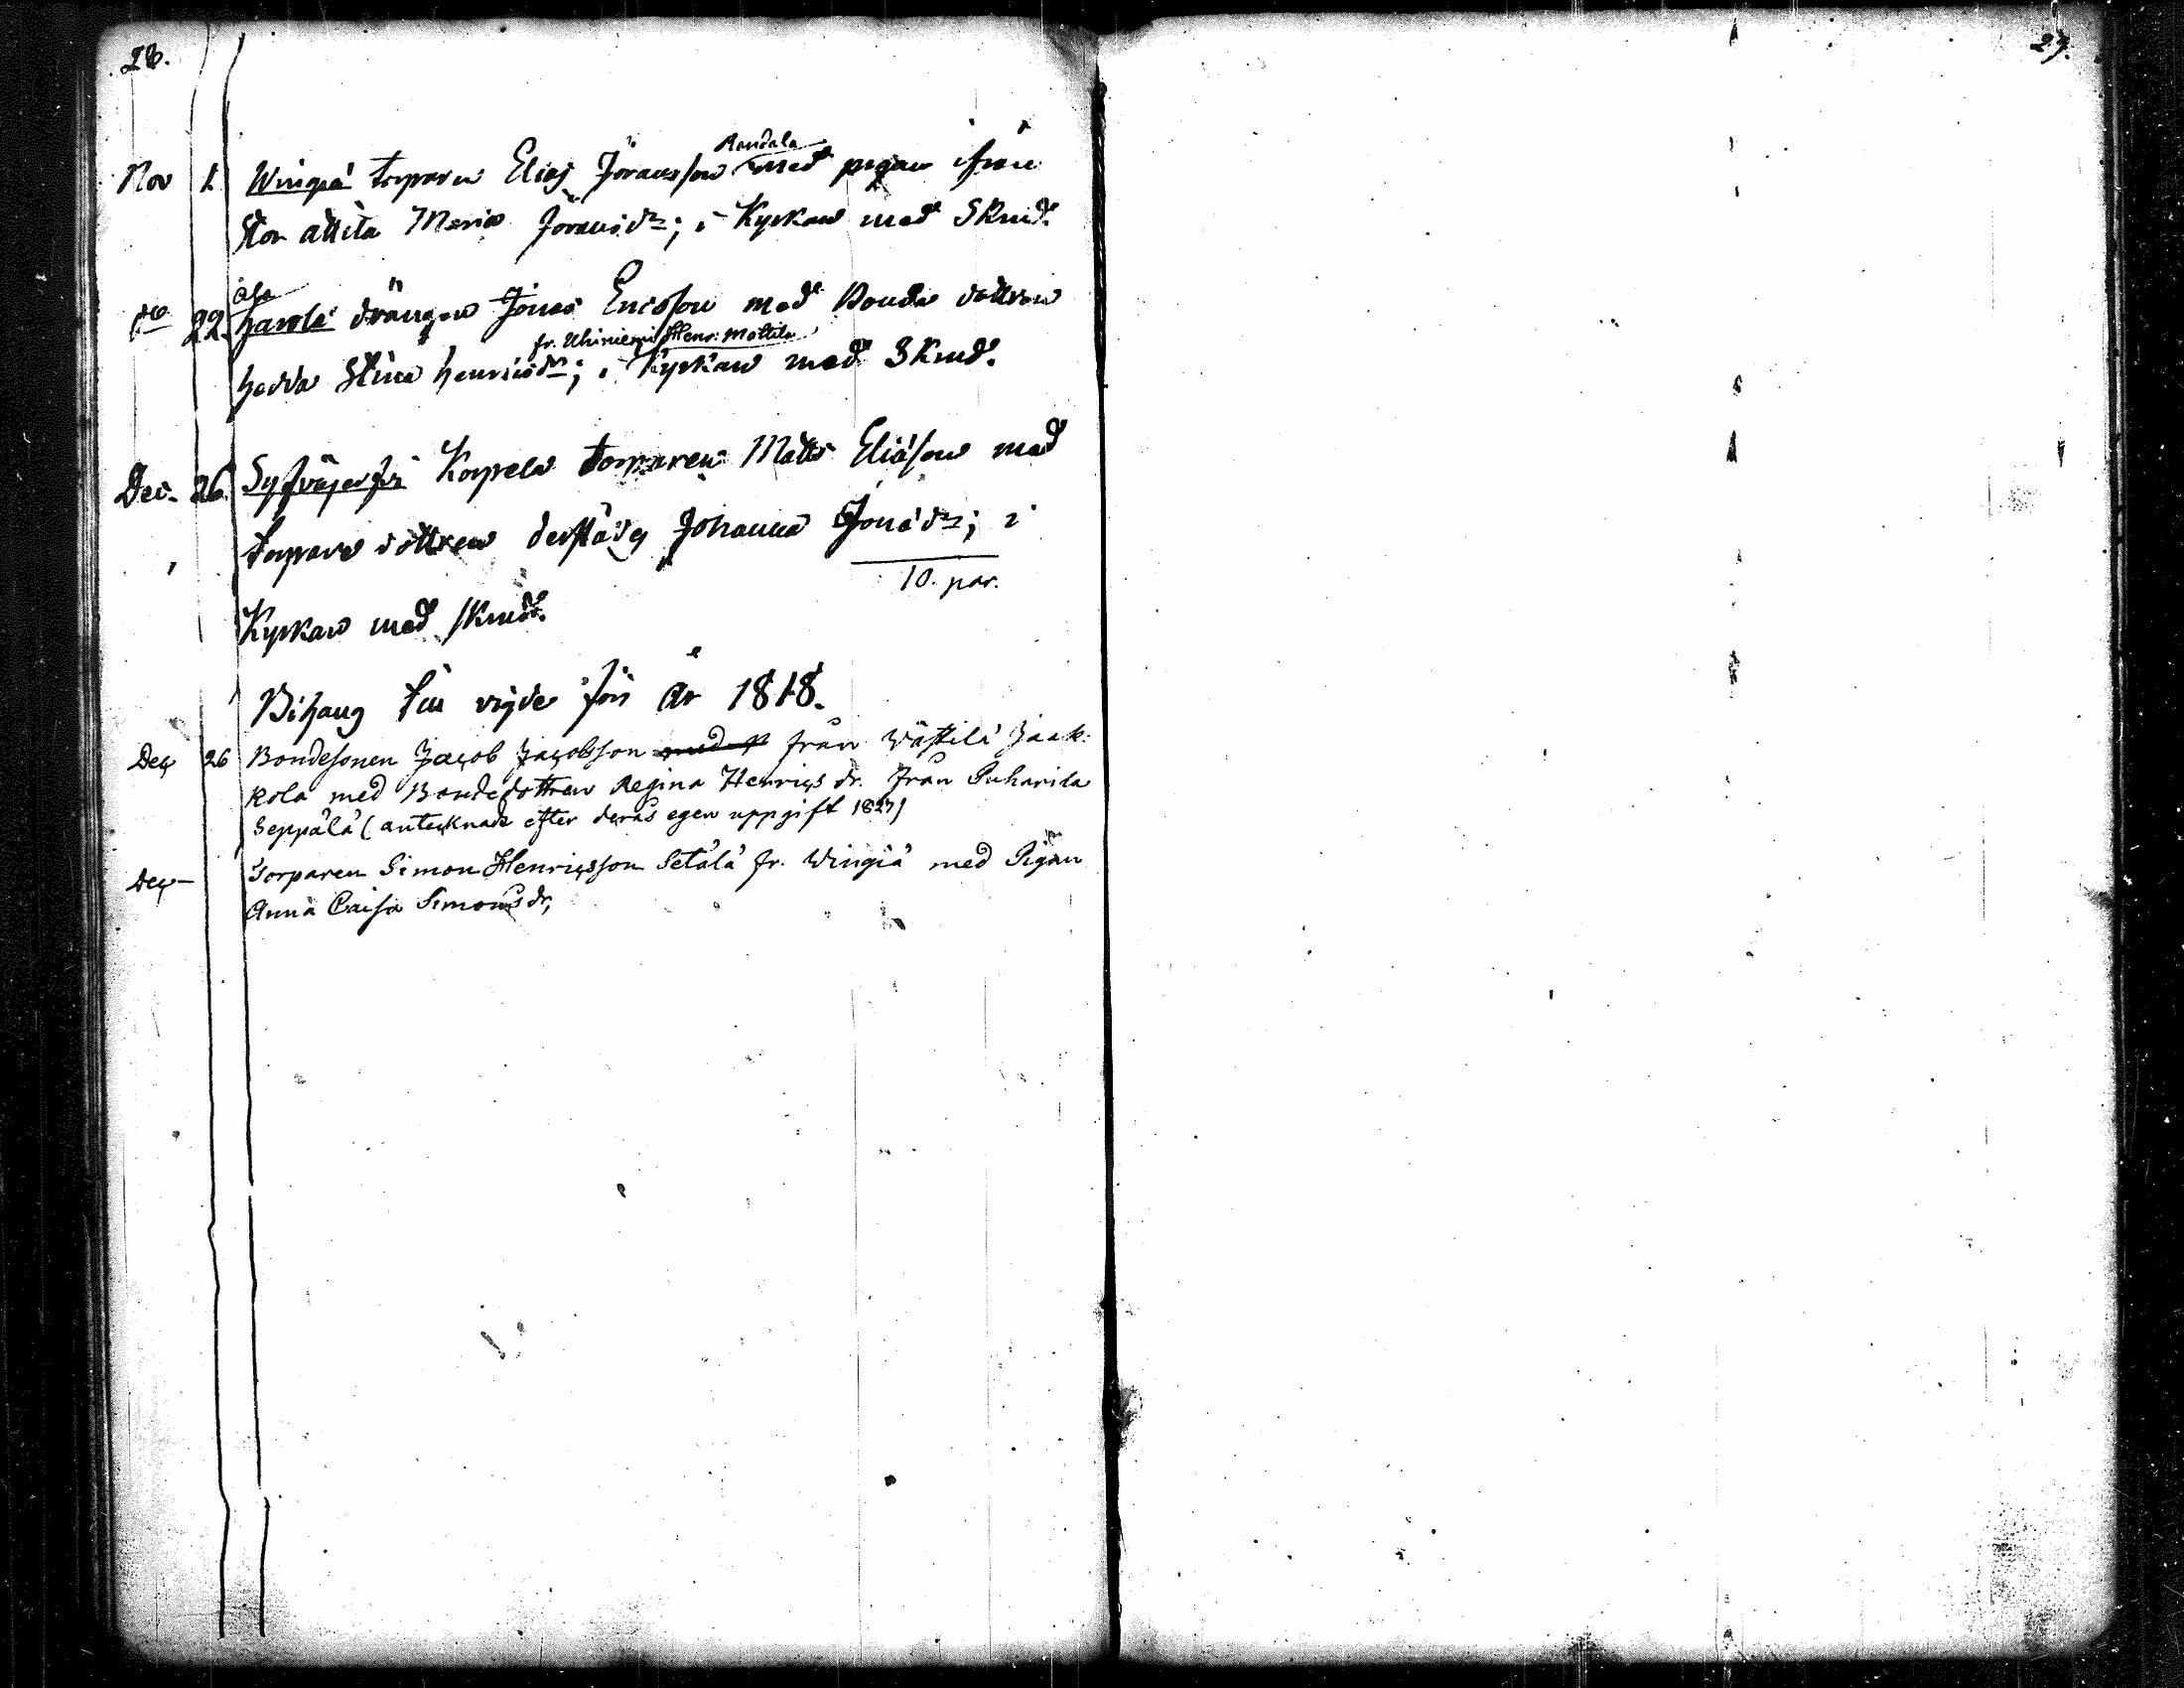 28.
29.
Randala
Nov 1. Wingiä torparen Elias Jöransson med pigan ifrån
Stor attila Maria Jöransdr; i Kyrkan med Skmd.
Ala
de 22. havola drängen Jonas Ericsson med Bonde dottren
fr. Uhiniemi Henr. Mattila
hedda Stina henricsdr; i Kyrkan med Skmd.
Dec. 26. Korpela torparen Matts Eliasson med
torpare dottren derstädes Johanna Jonædr; i
10. par.
Kyrkan med skmd.
Bihang till vigde för år 1818.
Dec 26 Bondesonen Jacob Jacobsson från Wästilä Jaak-
kola med Bondedottren Regina Henrics dr. från Puharila
Seppälä (antecknade efter deras egen uppgift 1827)
Dec – Torparen Simon Henricsson Setälä fr. Wingiä med Pigan
Anna Caisa Simons dr,